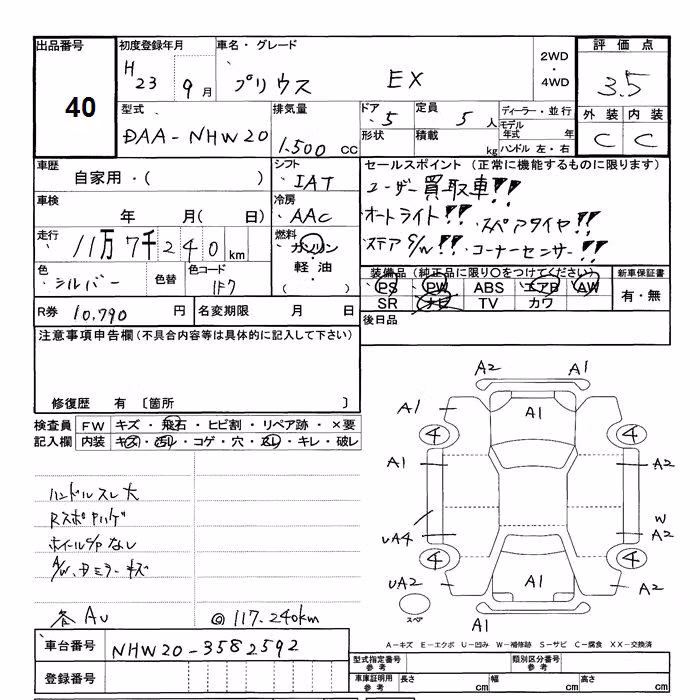 出品番号 初度登録年月 車名・グレード 2WD・4WD 評価点
40 H23 9月 プリウス EX 3.5
型式 排気量 ドア 5 定員 5人 ディーラー・並行 外装 内装
DAA-NHW20 1.500 CC 形状 積載 kg モデル年式 年 C C
ハンドル 左・右
車歴 シフト セールスポイント (正常に機能するものに限ります)
自家用・( ) IAT ユーザー買取車!!
車検 冷房 オートライト!! スペアタイヤ!!
年 月( 日) AAC ステアS/W!! コーナーセンサー!!
走行 11万7千240km 燃料 ガソリン・軽油・( )
色 シルバー 色替 色コード 1F7
装備品 (純正品に限り〇をつけてください) 新車保証書
PS PW ABS エアB AW 有・無
SR ナビ TV カワ
R券 10,790 円 名変期限 月 日 後日品
注意事項申告欄(不具合内容等は具体的に記入して下さい)
修復歴 有 〔箇所 〕
検査員記入欄 FW キズ・飛石・ヒビ割・リペア跡・×要
内装 キズ・汚れ・コゲ・穴・スレ・キレ・破レ
ハンドルスレ大
Rスポハゲ
ホイールC/Pなし
A/W、ドミラーキズ
各AU ◎117.240km
A2 A1
A1 A1
4 4
A1 A2
UA4 W A2
4 4
UA2 A1 A2
スペア A1
A-キズ E-エクボ U-凹み W-補修跡 S-サビ C-腐食 XX-交換済
車台番号 NHW20-3582592
登録番号
型式指定番号 参考 類別区分番号 参考
車庫証明用 参考 長さ cm 幅 cm 高さ cm